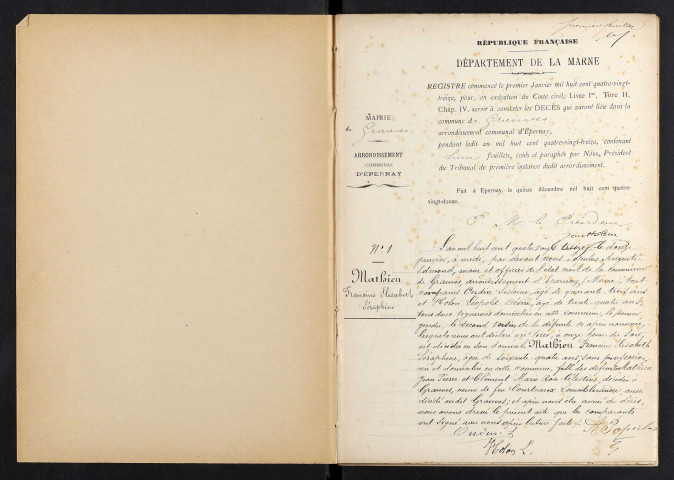 premier feuillet
RÉPUBLIQUE FRANÇAISE
DÉPARTEMENT DE LA MARNE
REGISTRE commencé le premier Janvier mil huit cent quatre-vingt-
treize, pour, en exécution du Code civil, Livre Ier, Titre II,
Chap. IV, servir à constater les DÉCÈS qui auront lieu dans la
commune de Grauves
arrondissement communal d'Epernay,
pendant ledit an mil huit cent quatre-vingt-treize, contenant
huit feuillets, cotés et paraphés par Nous, Président
du Tribunal de première instance dudit arrondissement.
Fait à Epernay, le quinze décembre mil huit cent quatre-
vingt-douze.
MAIRIE
de Grauves
ARRONDISSEMENT
COMMUNAL
D'EPERNAY
P. M. le Président
N° 1
Mathieu
Francine Elisabeth
Séraphine
L'an mil huit cent quatre vingt treize, le douze
janvier, à midi, par devant nous
Edmond, maire et officier de l'état civil de la commune
de Grauves, arrondissement d'Epernay (Marne) sont
comparus Oudin agé de quarante trois ans
et Holon Léopold Désiré, agé de trente quatre ans
tous deux vignerons domiciliés en cette commune, le premier
gendre, le second voisin de la défunte ci après nommée,
lesquels nous ont déclaré que hier, à onze heures du soir,
est décédée en son domicile Mathieu Francine Elisabeth
Séraphine, agée de soixante quatre ans, sans profession,
née et domiciliée en cette commune, fille des défunts Mathieu
Jean Pierre et Clément Marie Rose Célestine, décédés à
Grauves, veuve de feu Courteaux aussi
décédé audit Grauves; et après nous être assuré du décès,
nous avons dressé le présent acte que les comparants
ont signé avec nous après lecture faite.
Oudin
Holon L.